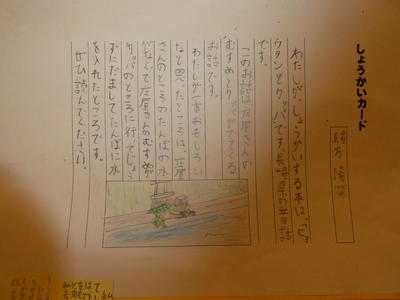 しょうかいカード
緒方 陽菜
わたしが、しょうかいする本は、「ビョ
ウタンとカッパ」です。長崎県の昔話
です。
このお話は、庄屋さんの
むすめとカッパがでてくる
お話です。
わたしが一番おもしろい
なと思ったところは、庄屋
さんのところのたんぼの水
がなくて庄屋さんのむすめが
カッパのところに行ってじょう
ずにだましてたんぼに水
を入れたところです。
ぜひ読んでください。